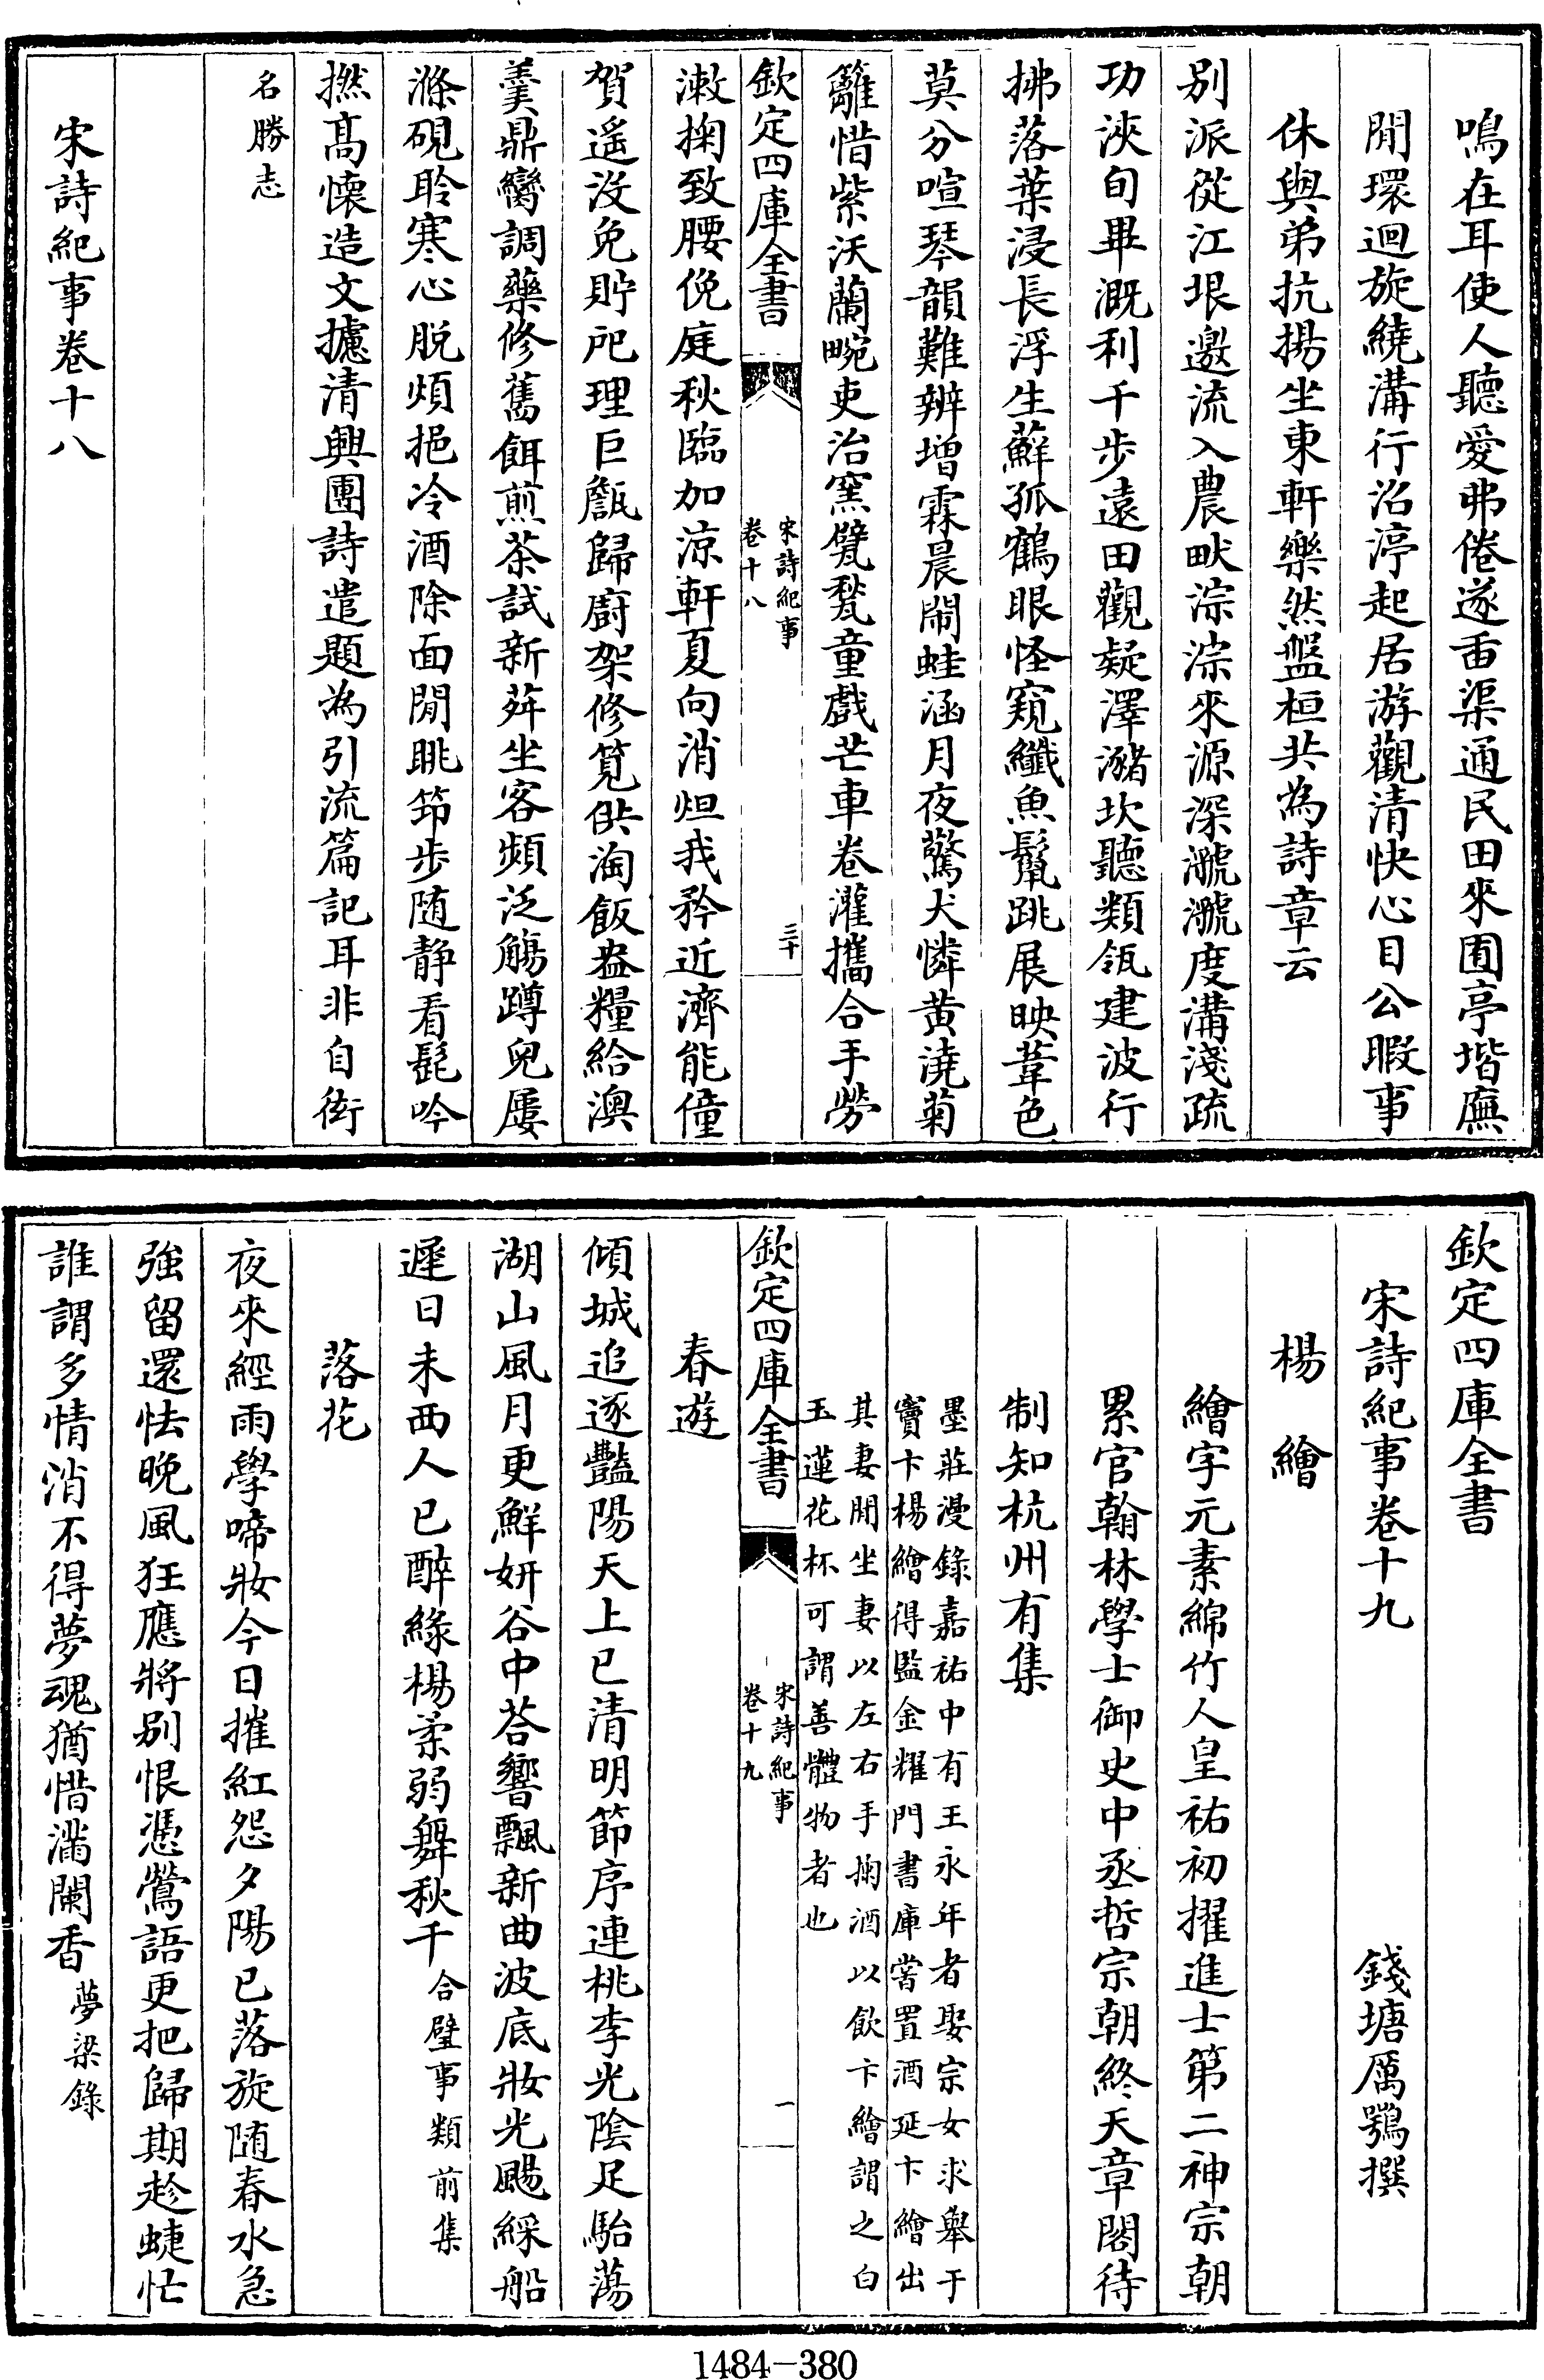 鳴在耳使人聽愛弗倦遂臿渠通民田來圃亭堦廡
閒環迴旋繞溝行沿渟起居游觀清快心目公暇事
休與弟抗揚坐東軒樂然盤桓共為詩章云
别派從江垠邀流入農畎淙淙來源深㶁㶁度溝淺疏
功浹旬畢溉利千步遠田觀疑澤瀦坎聽類瓴建波行
拂落葉浸長浮生蘚孤鶴眼怪窺纖魚鬛跳展映葦色
莫分喧琴韻難辨增霖晨鬧蛙涵月夜驚犬憐黄澆菊
籬惜紫沃蘭畹吏治窯甓甃童戲芒車卷灌攜合手勞
欽定四庫全書
宋詩紀事
卷十八
三十
漱掬致腰俛庭秋臨加涼軒夏向消烜我矜近濟能僮
賀遥没免貯戺理巨甔歸廚架修筧供淘飯盎糧給澳
羹鼎臠調藥修舊餌煎茶試新荈坐客頻泛觴蹲兒屢
滌硯聆寒心脱煩挹冷酒除面閒眺笻步随静看髭吟
撚髙懐造文攄清興團詩遣題為引流篇記耳非自衒
名勝志
宋詩紀事卷十八
欽定四庫全書
宋詩紀事卷十九
錢塘厲鶚撰
楊繪
繪字元素綿竹人皇祐初擢進士第二神宗朝
累官翰林學士御史中丞哲宗朝終天章閣待
制知杭州有集
墨莊漫錄嘉祐中有王永年者娶宗女求舉于
竇卞楊繪得監金耀門書庫嘗置酒延卞繪出
其妻閒坐妻以左右手掬酒以飲卞繪謂之白
玉蓮花杯可謂善體物者也
欽定四庫全書
宋詩紀事
卷十九
一
春遊
傾城追逐豔陽天上巳清明節序連桃李光陰足駘蕩
湖山風月更鮮妍谷中荅響飄新曲波底妝光颺綵船
遲日未西人已醉緑楊柔弱舞秋千
合璧事類前集
落花
夜來經雨學啼妝今日摧紅怨夕陽已落旋随春水急
強留還怯晚風狂應將别恨憑鶯語更把歸期趁蜨忙
誰謂多情消不得夢魂猶惜滿闌香
夢梁錄
1484-380